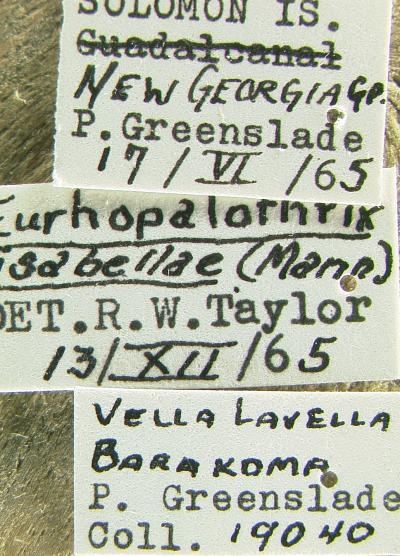 SOLOMON IS.
Guadalcanal
NEW GEORGIA GP.
P. Greenslade
17/VI/65
Eurhopalothrix
isabellae (Mann)
DET. R. W. Taylor
13/XII/65
VELLA LAVELLA
BARAKOMA
P. Greenslade
Coll. 19040